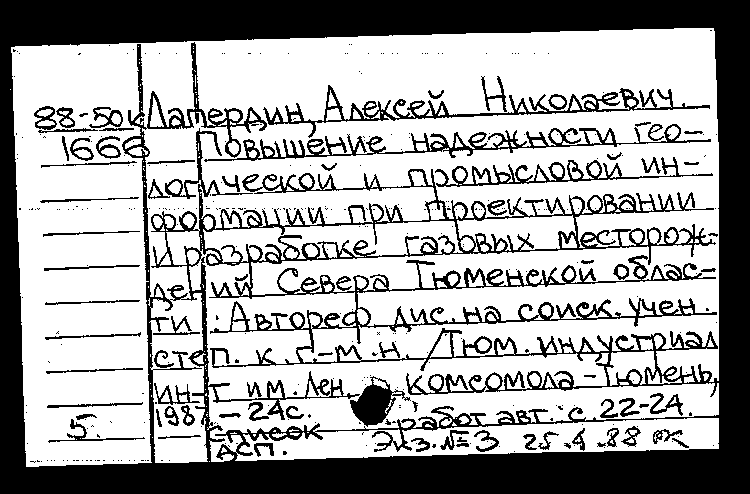 88-50к Лапердин, Алексей Николаевич.
1666 Повышение надежности гео-
логической и промысловой ин-
формации при проектировании
и разработке газовых месторож-
дений Севера Тюменской облас-
ти : Автореф дис. на соиск. учен.
степ. к. г.-м. н. / Тюм. индустриал
ин-т им. Лен. комсомола - Тюмень,
1987 - 24с.
Список работ авт.: с. 22-24.
5. ДСП. Экз. № 3 25.4.88